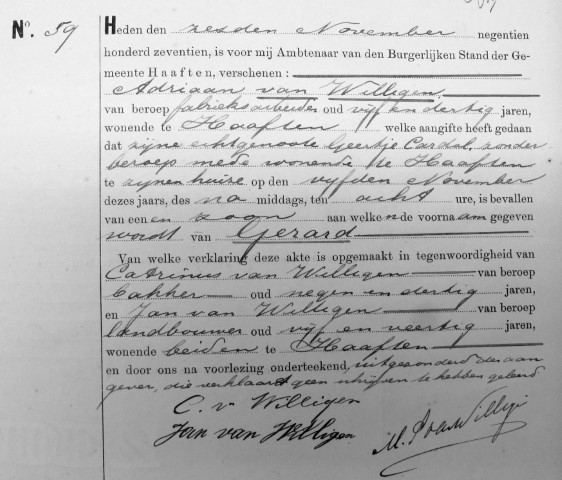 No. 59
Heden den zesden November negentien
honderd zeventien, is voor mij Ambtenaar van den Burgerlijken Stand der Ge-
meente Haaften, verschenen:
Adriaan van Willigen,
van beroep fabrieksarbeider oud vijf en dertig jaren,
wonende te Haaften welke aangifte heeft gedaan
dat zijne echtgenoote Geertje Cardol, zonder
beroep mede wonende te Haaften
te zijnen huize op den vijfden November
dezes jaars, des na middags, ten acht ure, is bevallen
van een en zoon aan welke n de voorna am gegeven
wordt van Gerard
Van welke verklaring deze akte is opgemaakt in tegenwoordigheid van
Catrinus van Willigen van beroep
bakker oud negen en dertig jaren,
en Jan van Willigen van beroep
landbouwer oud vijf en veertig jaren,
wonende beiden te Haaften
en door ons na voorlezing onderteekend, uitgezonderd den aan
gever, die verklaart geen schrijven te hebben geleerd
C. v Willigen
Jan van Willigen